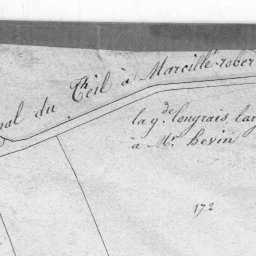 nal du Theil à Marcillé-rober
la gde longrais, lar
à Mr Bevin
172